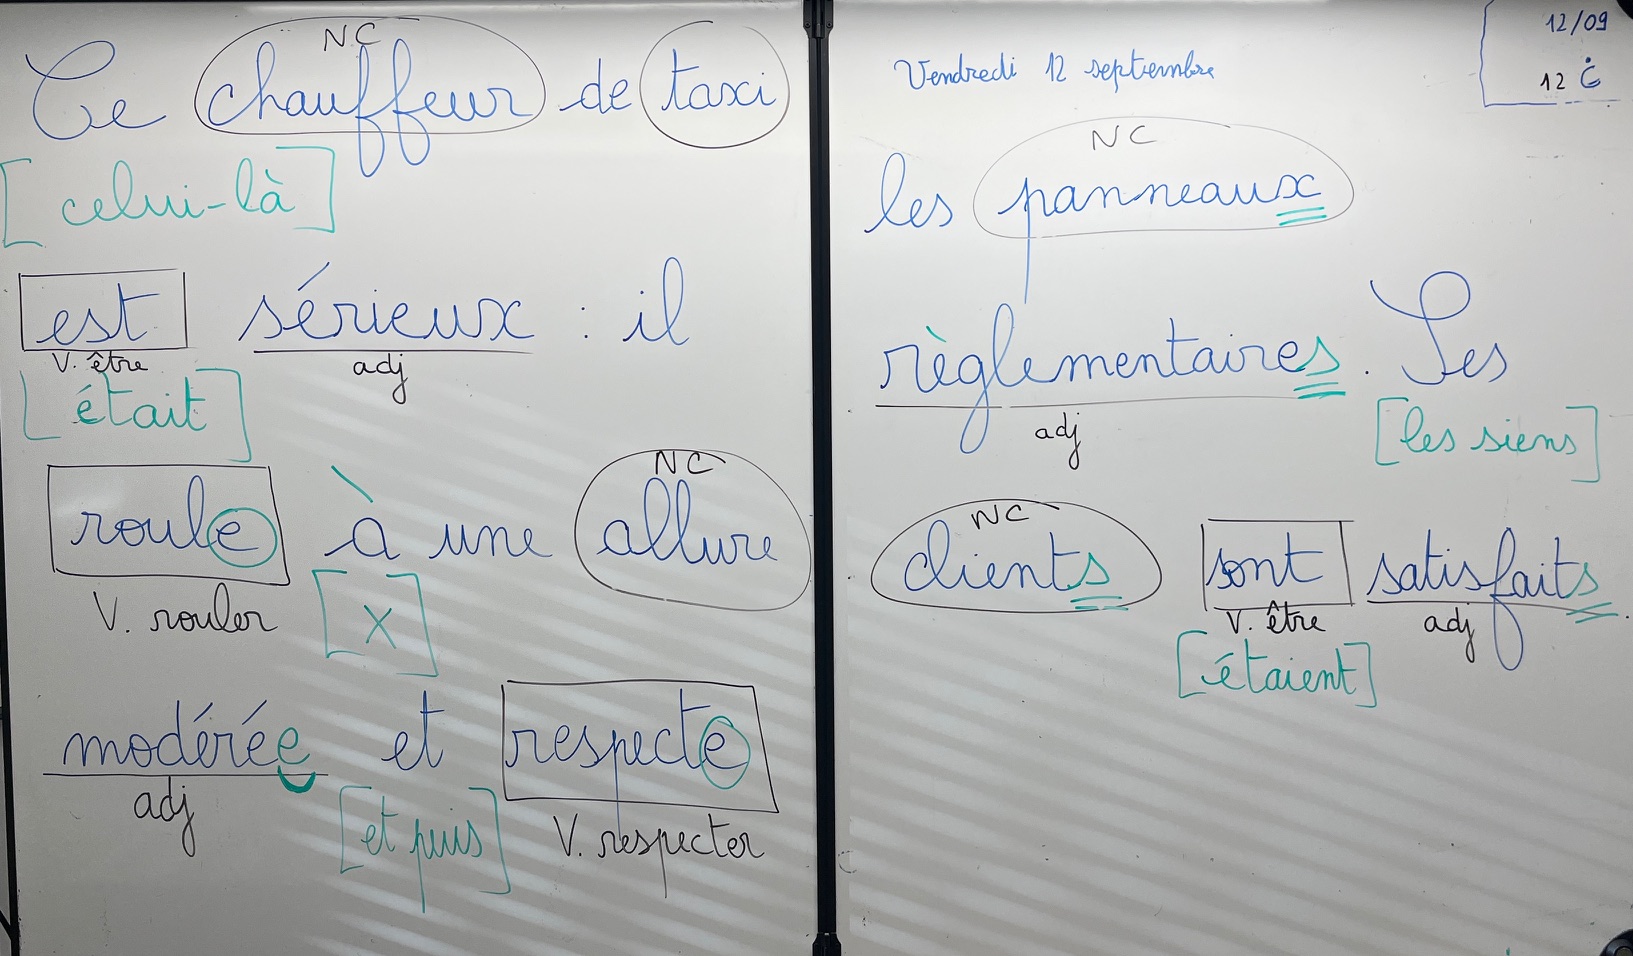 NC
Ce chauffeur de taxi
[celui-là]
est sérieux : il
V. être adj
[était]
NC
roule à une allure
V. rouler [X]
modérée et respecte
adj [et puis] V. respecter
12/09
Vendredi 12 septembre
12 Ċ
NC
les panneaux
règlementaires. Ses
adj [les siens]
NC
clients sont satisfaits.
V. être adj
[étaient]